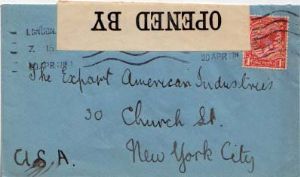 OPENED BY
LONDON
20 APR 18
The Export American Industries
30 Church St.
New York City
U.S.A.